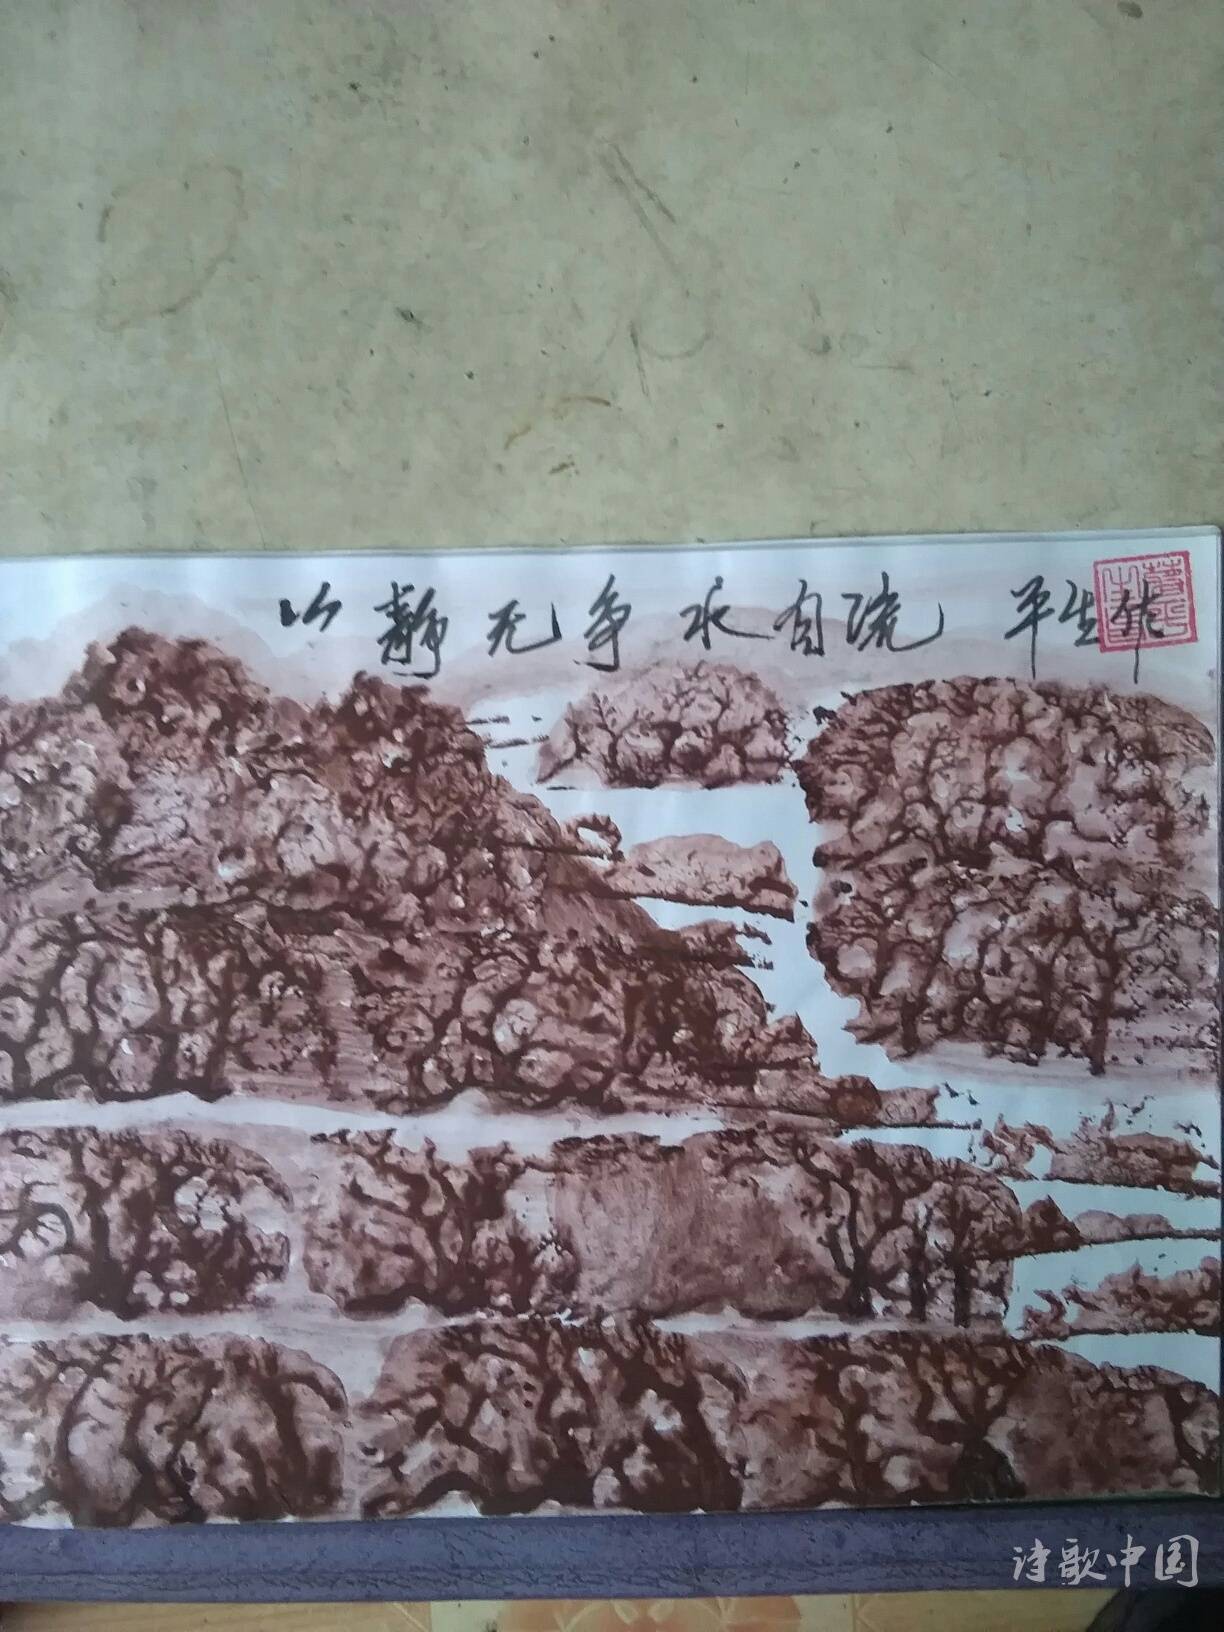 山静无争水自流 平生作
诗歌中国